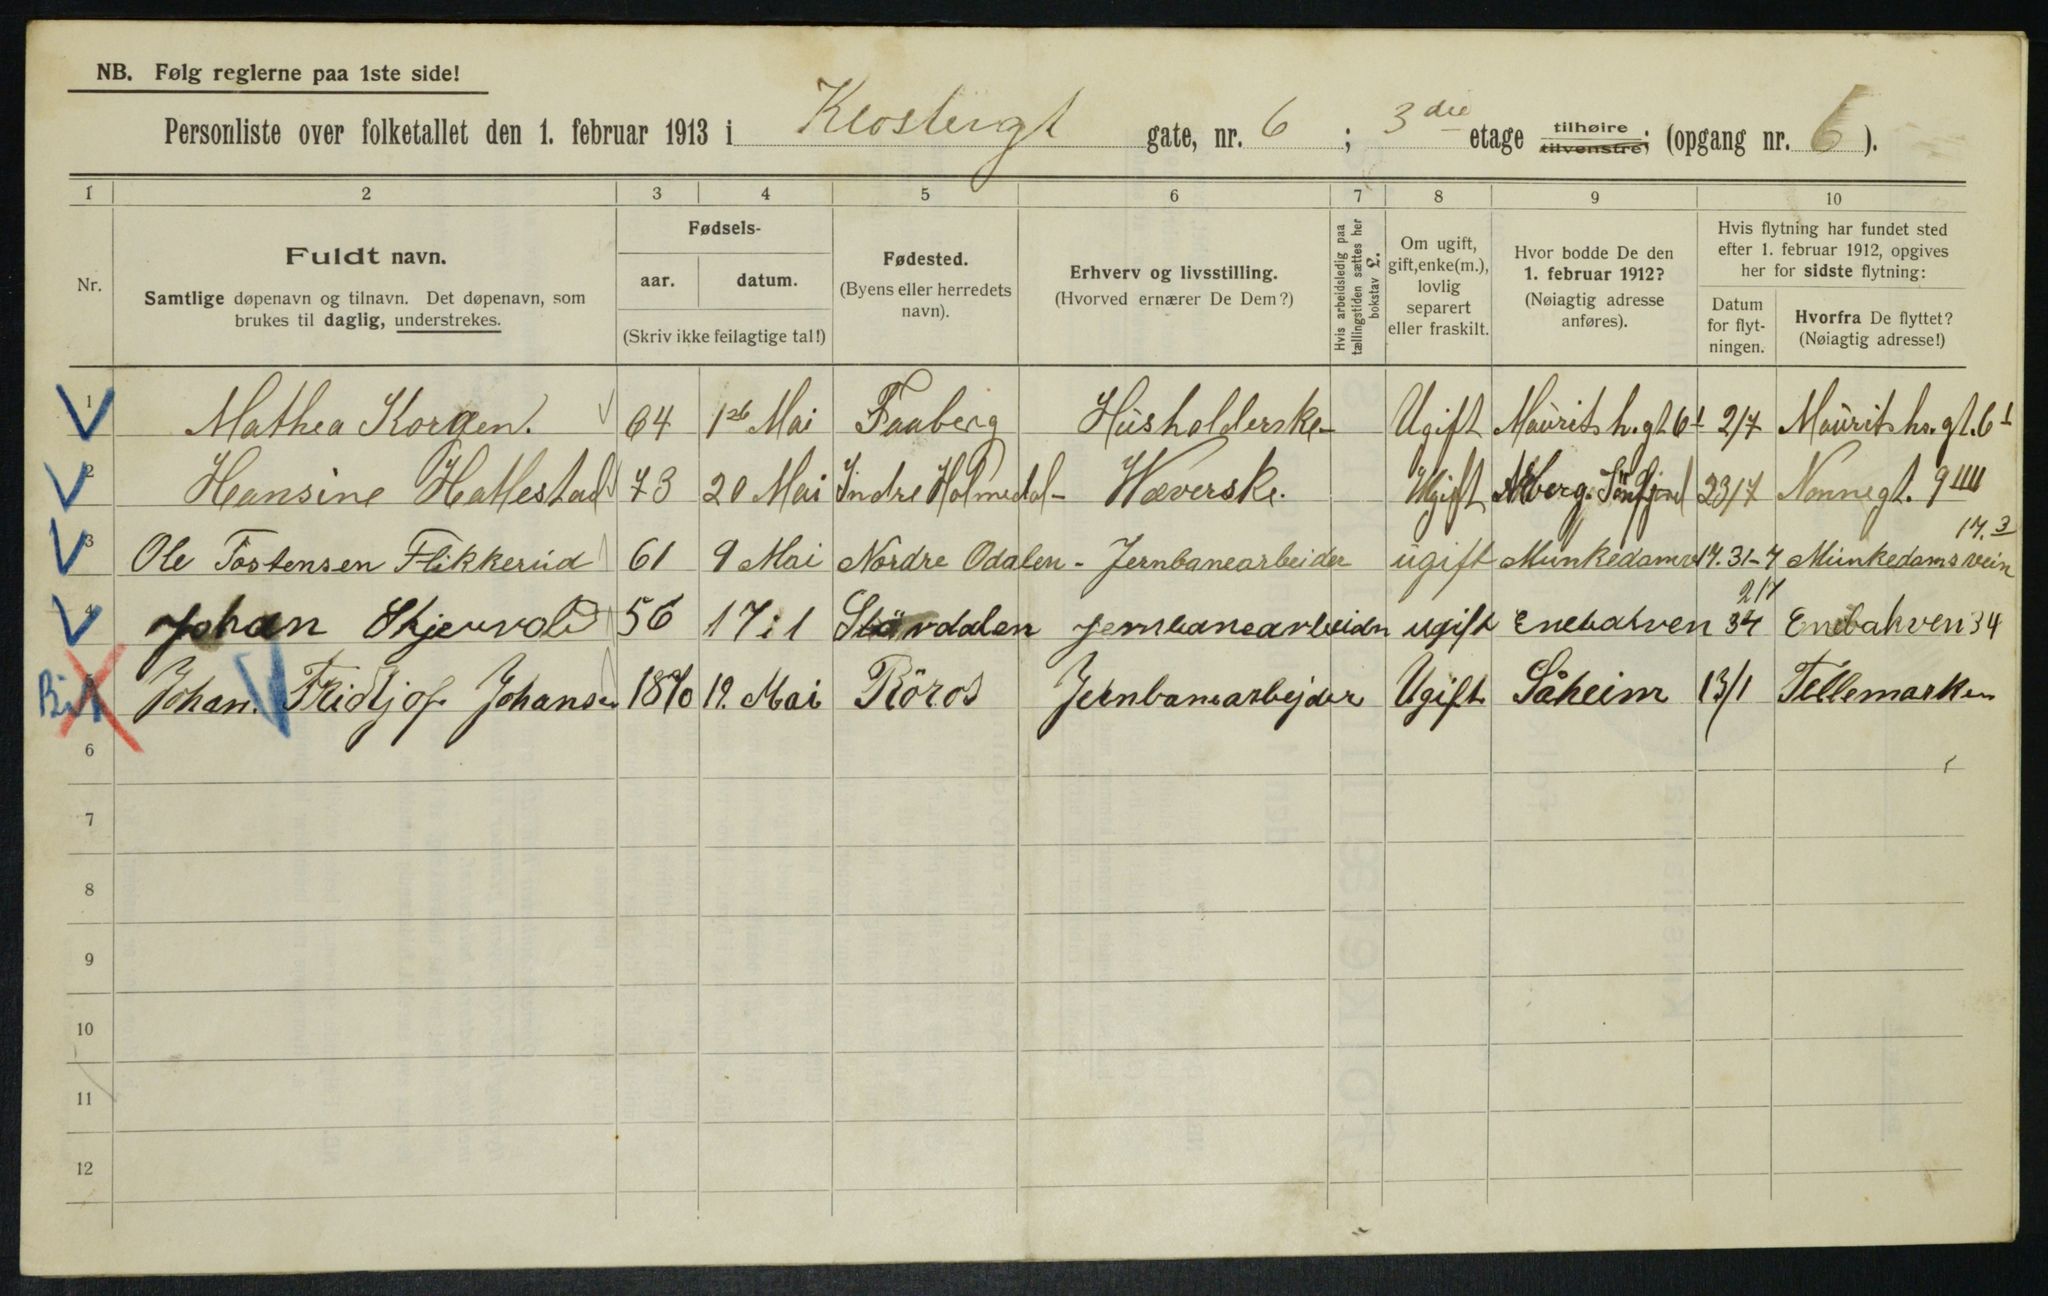 NB. Følg reglerne paa 1ste side!
Personliste over folketallet den 1. februar 1913 i Klostergt gate, nr. 6 ; 3die etage tilhøire tilvenstre; (opgang nr. 6 ).
1 2 3 4 5 6 7 8 9 10
Nr.
Fuldt navn.
Samtlige døpenavn og tilnavn. Det døpenavn, som
brukes til daglig, understrekes.
Fødsels-
aar. datum.
(Skriv ikke feilagtige tal!)
Fødested.
(Byens eller herredets
navn).
Erhverv og livsstilling.
(Hvorved ernærer De Dem?)
Hvis arbeidsledig paa
tællingstiden sættes her
bokstav L.
Om ugift,
gift, enke(m.),
lovlig
separert
eller fraskilt.
Hvor bodde De den
1. februar 1912?
(Nøiagtig adresse
anføres).
Hvis flytning har fundet sted
efter 1. februar 1912, opgives
her for sidste flytning:
Datum
for flyt-
ningen.
Hvorfra De flyttet?
(Nøiagtig adresse!)
1 Mathea Korgen. 64 1ste Mai Faaberg Husholderske Ugift Maurits h.gt 6 I 2/7 Maurits hs. gt. 6 I
2 Hansine Hatlestad 73 20 Mai Indre Holmedal Wæverske. Ugift Söndfjord 23/7 Nonnegt. 9 IIII
3 Ole Tostensen Flikkerud 61 9 Mai Nordre Odalen Jernbanearbeider ugift Munkedamsv 17. 31-7 Munkedamsvein 17.3
4 Johan Skjervold 56 17 : 1 Stördalen jernbanearbeider ugift Enebakven 34 2/7 Enebakven 34
5 Johan. Fridtjof Johansen 1870 19. Mai Röros Jernbanearbejder Ugift Såheim 13/1 Tellemarken
6
7
8
9
10
11
12